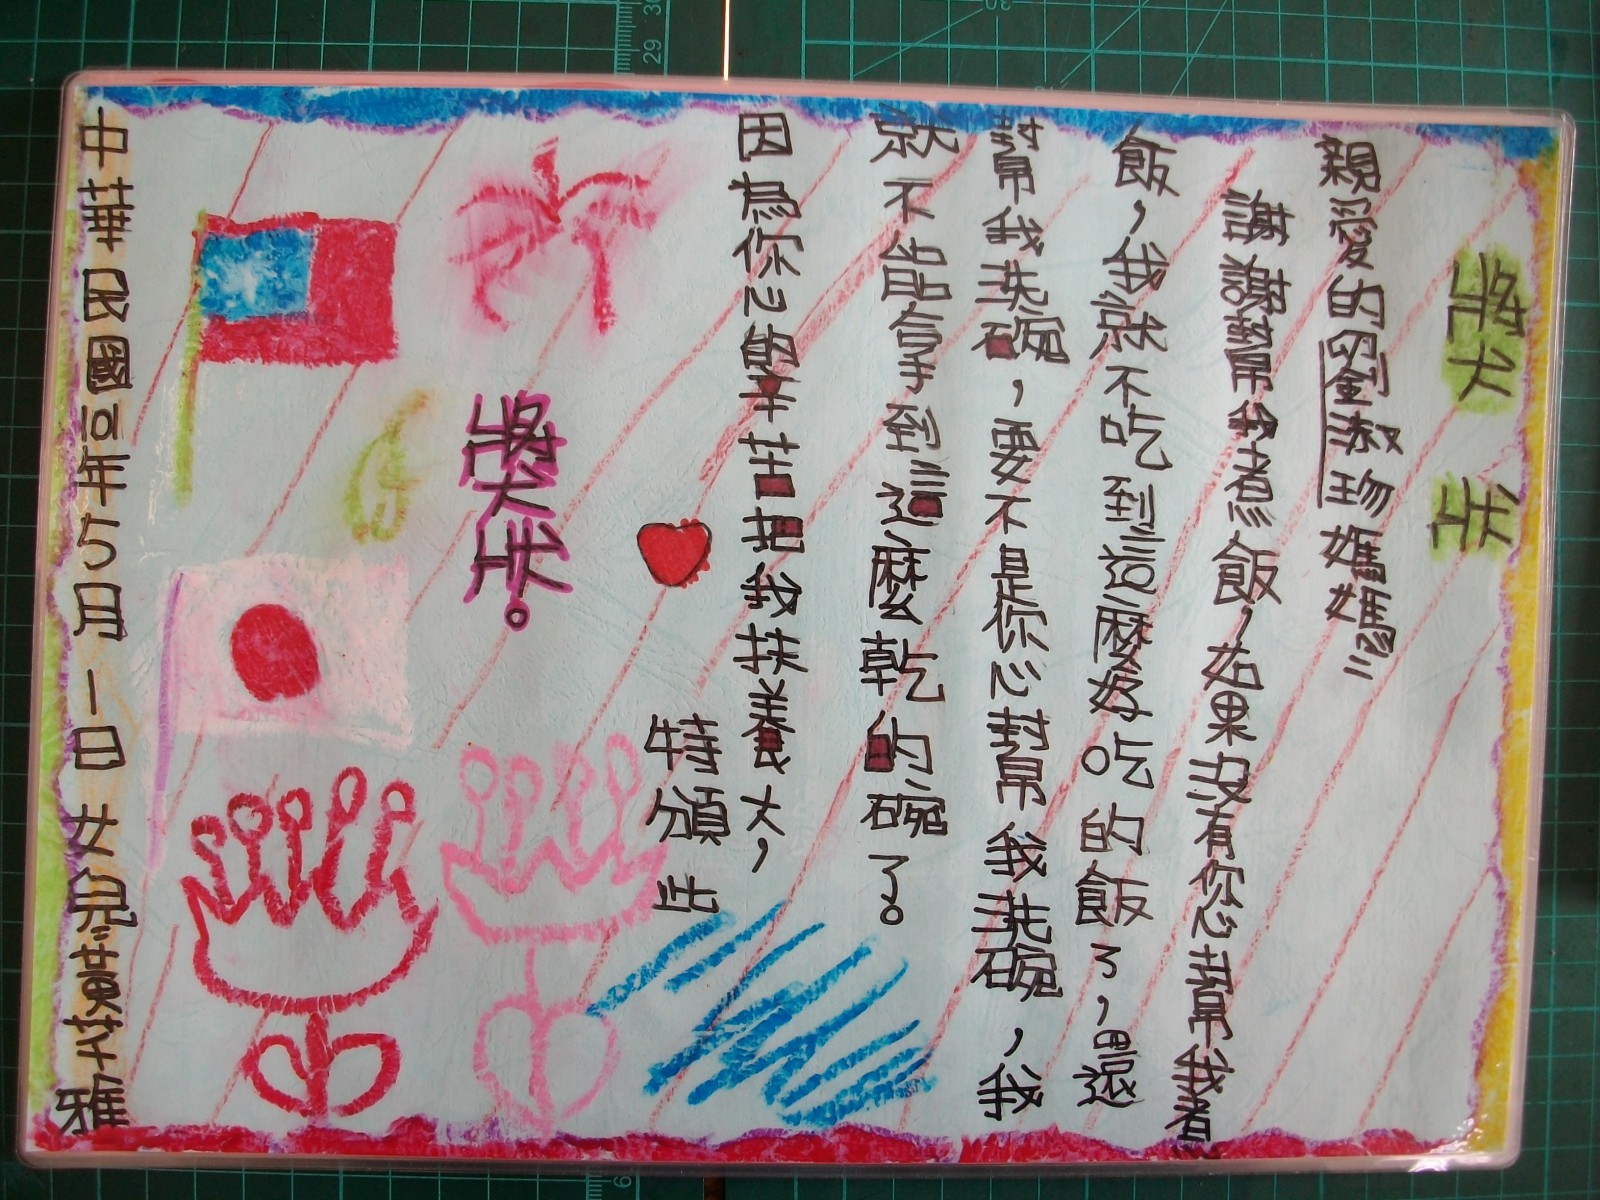 獎狀
親愛的劉淑玢媽媽:
謝謝幫我煮飯,如果沒有您幫我煮
飯,我就不吃到這麼好吃的飯了,還
幫我洗碗,要不是你心幫我洗碗,我
就不能拿到這麼乾的碗了。
因為你心的辛苦把我扶養大,
特頒此
獎狀。
中華民國101年5月1日女兒:黃芊雅
29